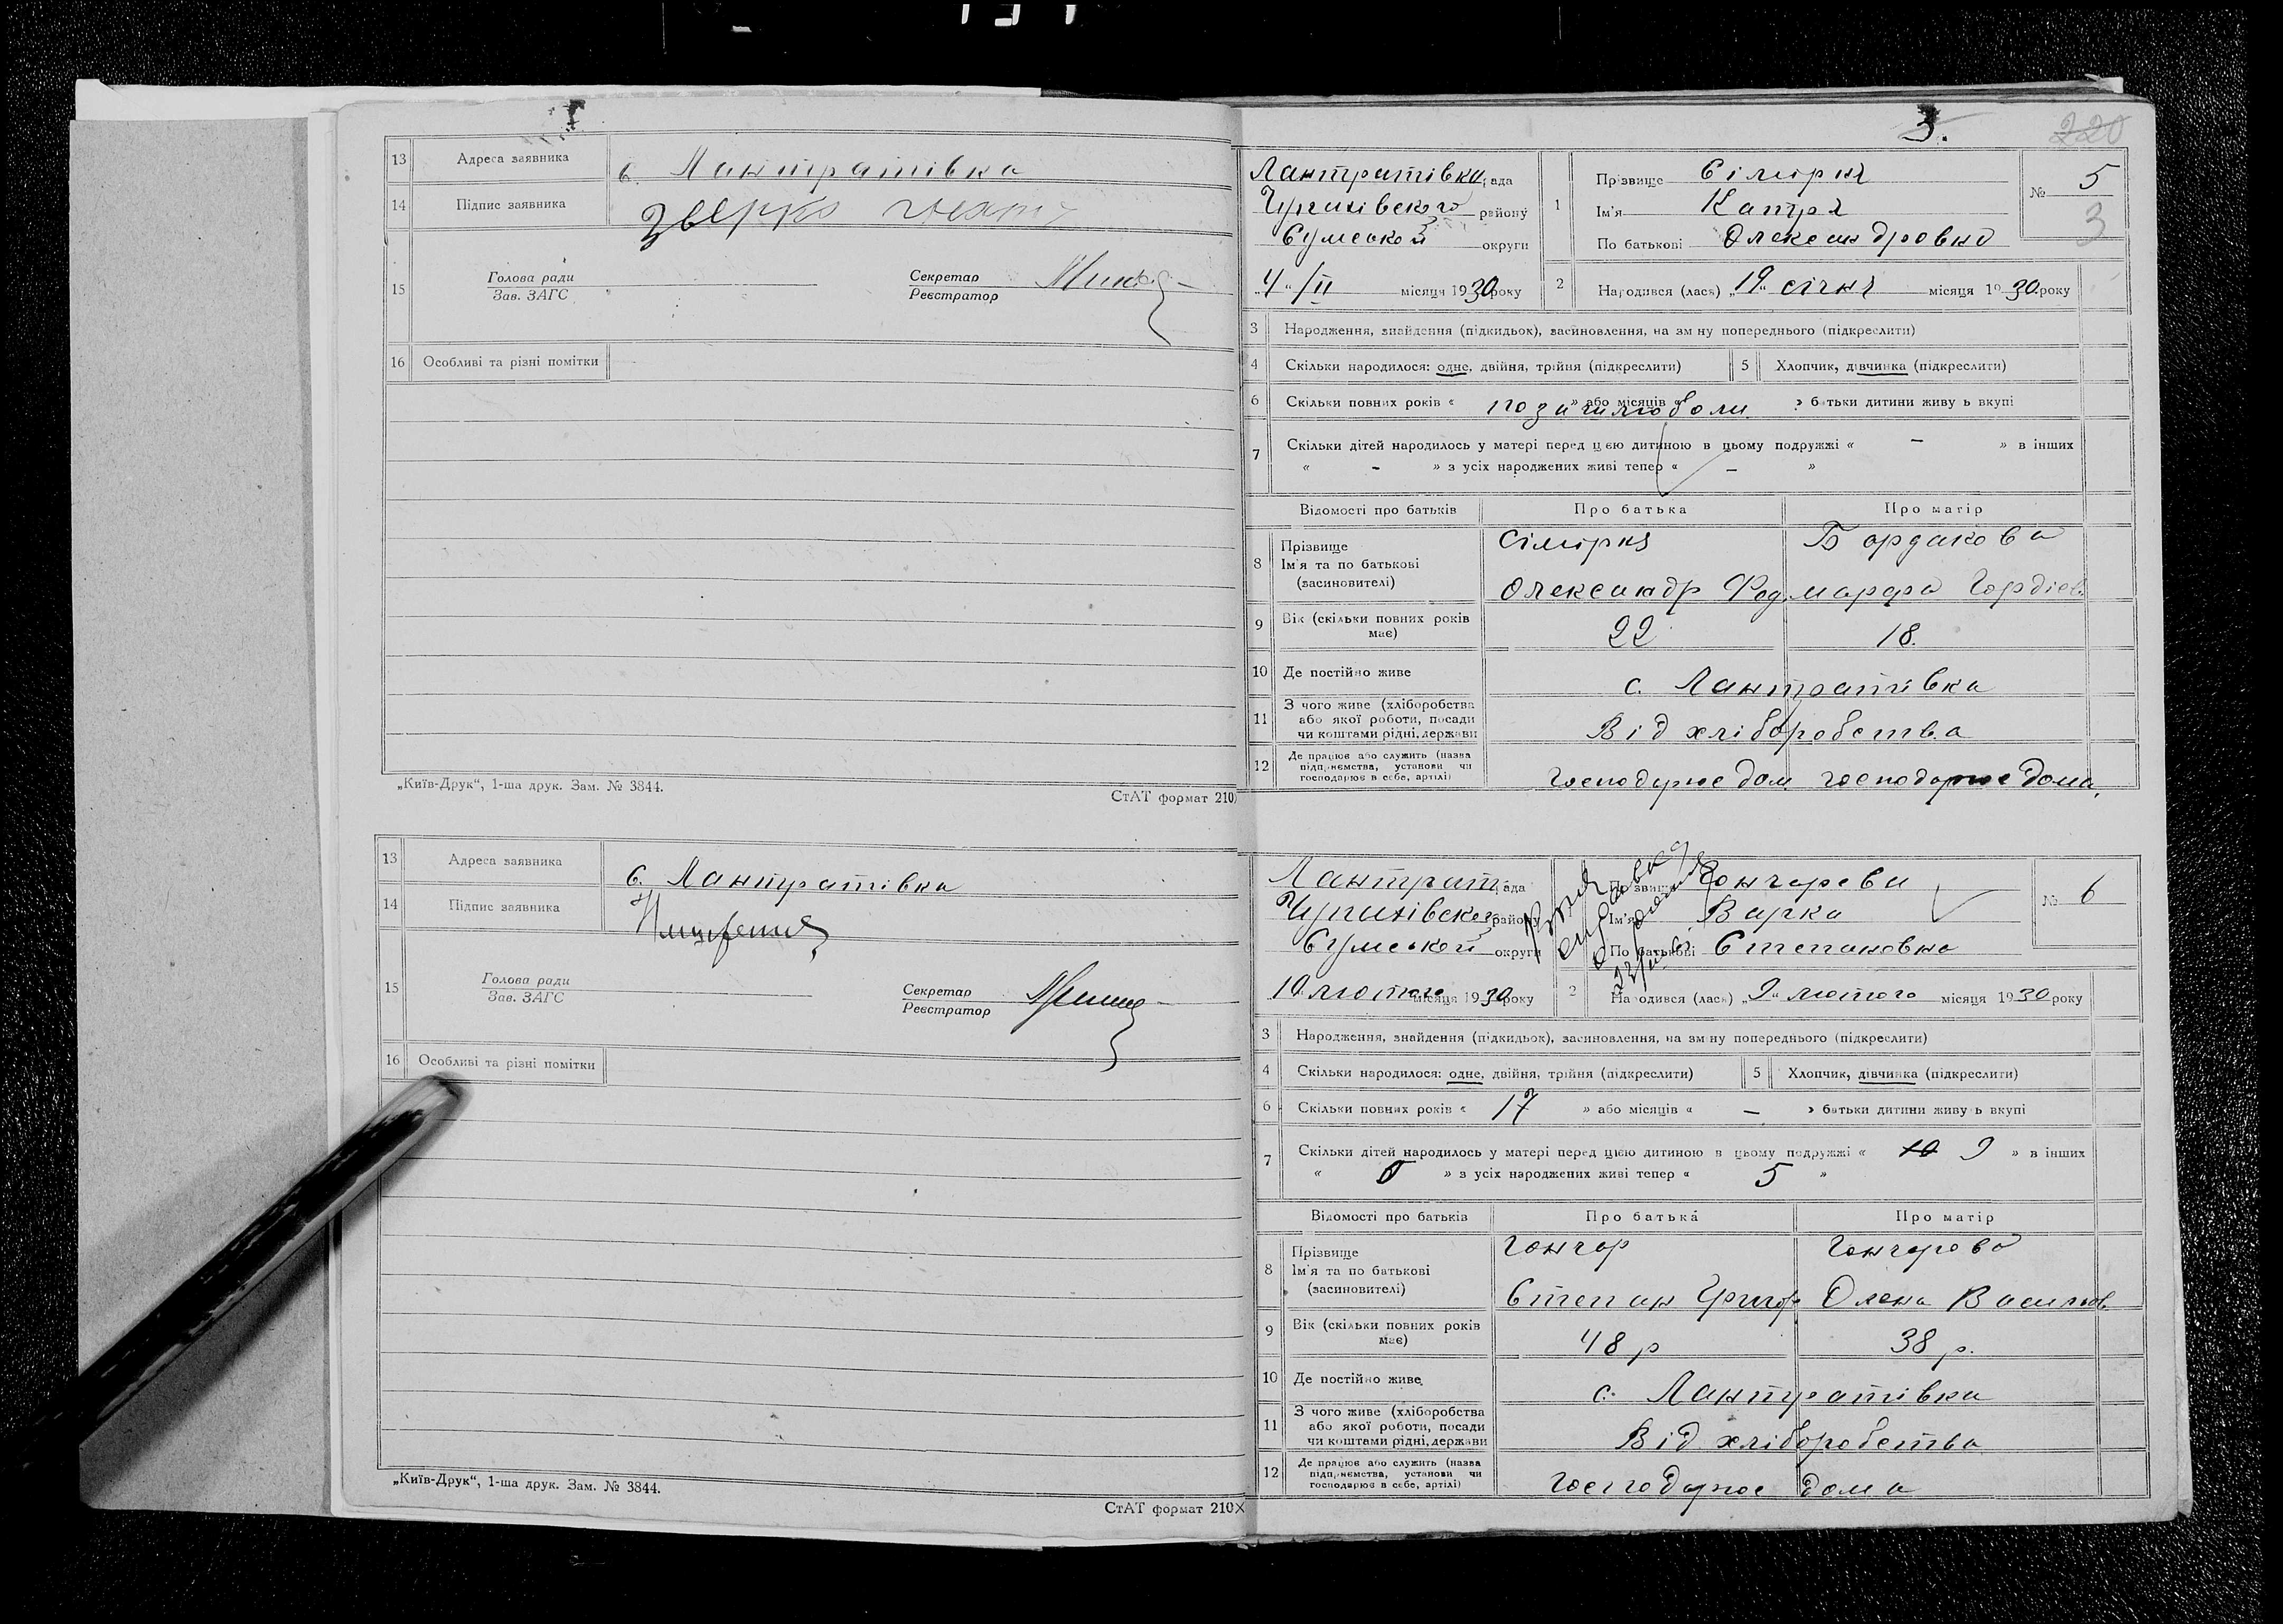 13 Адреса заявника с. Лантратівка
14 Підпис заявника
15 Голова ради
Зав. ЗАГС
Секретар
Реєстратор
16 Особливі та різні помітки
„Київ-Друк“, 1-ша друк. Зам. № 3844.
СтАТ формат 210
13 Адреса заявника с. Лантратівка
14 Підпис заявника
15 Голова ради
Зав. ЗАГС
Секретар
Реєстратор
16 Особливі та різні помітки
„Київ-Друк“, 1-ша друк. Зам. № 3844.
СтАТ формат 210X
3. 220
Лантратівка рада
району
Сумської округи
„4“ /II місяця 1930 року
1 Прізвище Сімірня
Ім'я Капря
По батькові Олександровна
№ 5
3
2 Народився (лася) „19“ січня місяця 1930 року
3 Народження, знайдення (підкидьок), засиновлення, на зміну попереднього (підкреслити)
4 Скільки народилося: одне, двійня, трійня (підкреслити) 5 Хлопчик, дівчинка (підкреслити)
6 Скільки повних років « » або місяців « » батьки дитини живуть вкупі
7 Скільки дітей народилось у матері перед цією дитиною в цьому подружжі « – » в інших
« – » з усіх народжених живі тепер « – »
Відомості про батьків Про батька Про матір
8 Прізвище
Ім'я та по батькові
(засиновителі)
Сімірня Бордакова
Олександр Фед. Марфа Гордіев.
9 Вік (скільки повних років має) 22 18.
10 Де постійно живе с. Лантратівка
11 З чого живе (хліборобства
або якої роботи, посади
чи коштами рідні, держави
Від хліборобства
12 Де працює або служить (назва
підприємства, установи чи
господарює в себе, артілі)
Господарює дом. господарює дома.
Лантрат. рада
району
Сумської округи
10 лютого місяця 1930 року
1 Прізвище Гончарева
Ім'я Варка
По батькові Степановна
№ 6
2 Народився (лася) „9“ лютого місяця 1930 року
3 Народження, знайдення (підкидьок), засиновлення, на зміну попереднього (підкреслити)
4 Скільки народилося: одне, двійня, трійня (підкреслити) 5 Хлопчик, дівчинка (підкреслити)
6 Скільки повних років « 17 » або місяців « – » батьки дитини живуть вкупі
7 Скільки дітей народилось у матері перед цією дитиною в цьому подружжі « 10 9 » в інших
« 0 » з усіх народжених живі тепер « 5 »
Відомості про батьків Про батька Про матір
8 Прізвище
Ім'я та по батькові
(засиновителі)
Гончар Гончарова
Степан Григор. Олена Васильов.
9 Вік (скільки повних років має) 48 р 38 р.
10 Де постійно живе с. Лантратівка
11 З чого живе (хліборобства
або якої роботи, посади
чи коштами рідні, держави
Від хліборобства
12 Де працює або служить (назва
підприємства, установи чи
господарює в себе, артілі)
Господарює дома